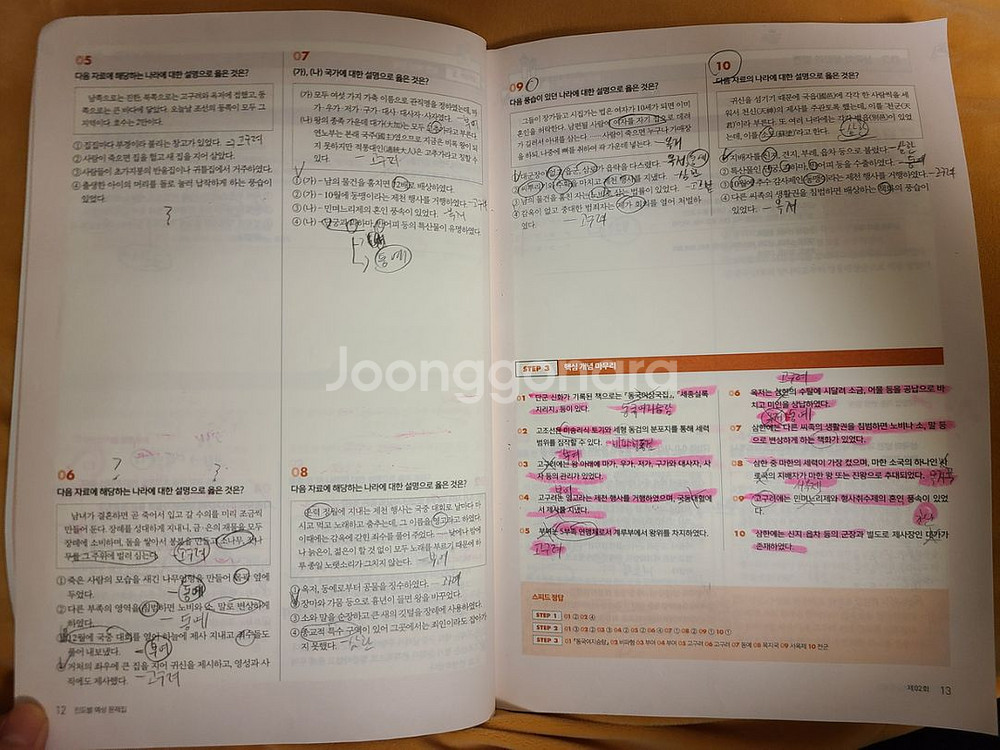 05
다음 자료에 해당하는 나라에 대한 설명으로 옳은 것은?
남쪽으로는 진한, 북쪽으로는 고구려와 옥저에 접했고, 동
쪽으로는 큰 바다에 닿았다. 오늘날 조선의 동쪽이 모두 그
지역이다. 호수는 2만이다.
① 집집마다 부경이라 불리는 창고가 있었다. 고구려
② 사람이 죽으면 집을 헐고 새 집을 지어 살았다.
③ 사람들이 초가지붕의 반움집이나 귀틀집에서 거주하였다.
④ 출생한 아이의 머리를 돌로 눌러 납작하게 하는 풍습이
있었다.
?
06
? ?
다음 자료에 해당하는 나라에 대한 설명으로 옳은 것은?
남녀가 결혼하면 곧 죽어서 입고 갈 수의를 미리 조금씩
만들어 둔다. 장례를 성대하게 지내니, 금·은의 재물을 모두
장례에 소비하며, 돌을 쌓아서 봉분을 만들고 소나무, 잣나
무를 그 주위에 벌려 심는다. 고구려
① 죽은 사람의 모습을 새긴 나무 인형을 만들어 옆에
두었다. - 동예
② 다른 부족의 영역을 침범하면 노비와 소, 말로 변상하게
하였다. - 동예
③ 12월에 국중 대회를 열어 하늘에 제사 지내고 죄수들도
풀어 내보냈다. - 부여
④ 거처의 좌우에 큰 집을 지어 귀신을 제사하고, 영성과 사
직에도 제사했다. - 고구려
12 진도별 예상 문제집
07
(가), (나) 국가에 대한 설명으로 옳은 것은?
(가) 모두 여섯 가지 가축 이름으로 관직명을 정하였는데, 마
가·우가·저가·구가·대사·대사자·사자였다. - 부여
(나) 왕의 종족 가운데 대가(大加)는 모두 고추가라고 부른다.
연노부는 본래 국주(國主)였으므로 지금은 비록 왕이 되
지 못하지만 적통대인(適統大人)은 고추가라고 칭할 수
있다. - 고구려
① (가) - 남의 물건을 훔치면 12배로 배상하였다.
② (가) - 10월에 동맹이라는 제천 행사를 거행하였다. 고구려
③ (나) - 민며느리제의 혼인 풍속이 있었다. 옥저
④ (나) - 단궁과 과하마, 반어피 등의 특산물이 유명하였다.
동예
08
다음 자료에 해당하는 나라에 대한 설명으로 옳은 것은?
은력 정월에 지내는 제천 행사는 국중 대회로 날마다 마
시고 먹고 노래하고 춤추는데, 그 이름을 영고라고 하였다.
이때에는 감옥에 갇힌 죄수를 풀어 주었다. …… 낮에나 밤에
나 늙은이, 젊은이 할 것 없이 모두 노래를 부르기 때문에 하
루 종일 노랫소리가 그치지 않는다. - 부여
① 옥저, 동예로부터 공물을 징수하였다.
② 장마와 가뭄 등으로 흉년이 들면 왕을 바꾸었다.
③ 소와 말을 순장하고 큰 새의 깃털을 장례에 사용하였다.
④ 종교적 특수 구역이 있어 그곳에서는 죄인이라도 잡아가
지 못했다. - 삼한
09
다음 풍습이 있던 나라에 대한 설명으로 옳은 것은?
그들이 장가들고 시집가는 법은 여자가 10세가 되면 이미
혼인을 허락한다. 남편될 사람이 여자를 자기 집으로 데려
가 길러서 아내를 삼는다. …… 사람이 죽으면 누구나 가매장
을 하되, 나중에 뼈를 취하여 곽 가운데 둔다. - 옥저
① 대군장이 없고 읍군, 삼로가 읍락을 다스렸다. 옥저 동예
③ 남의 물건을 훔친 자는 노비로 삼는 법률이 있었다.
④ 감옥이 없고 중대한 범죄자는 제가 회의를 열어 처벌하
였다. - 고구려
10
다음 자료의 나라에 대한 설명으로 옳은 것은?
귀신을 섬기기 때문에 국읍(國邑)에 각각 한 사람씩을 세
워서 천신(天神)의 제사를 주관토록 했는데, 이를 '천군(天
君)'이라 부른다. 또, 여러 나라에는 각각 별읍(別邑)이 있었
는데, 이를 소도(蘇塗)라고 한다. 삼한
① 지배자를 신지, 견지, 부례, 읍차 등으로 불렀다. - 삼한
② 특산물인 단궁, 과하마, 반어피 등을 수출하였다. - 동예
③ 10월에 추수 감사제인 동맹이라는 제천 행사를 거행하였다. - 고구려
④ 다른 씨족의 생활권을 침범하면 배상하는 책화의 풍습이
있었다.
STEP 3 핵심 개념 마무리
01 단군 신화가 기록된 책으로는 『동국이상국집』, 『세종실록
지리지』 등이 있다. 동국여지승람
02 고조선은 미송리식 토기와 세형 동검의 분포지를 통해 세력
범위를 짐작할 수 있다. 비파형동검
부여
03 고구려에는 왕 아래에 마가, 우가, 저가, 구가와 대사자, 사
자 등의 관리가 있었다.
부여
04 고구려는 영고라는 제천 행사를 거행하였으며, 국동대혈에
서 제사를 지냈다.
05 부여는 5부족 연맹체로서 계루부에서 왕위를 차지하였다.
고구려
고구려
06 옥저는 삼한의 수탈에 시달려 소금, 어물 등을 공납으로 바
치고 미인을 상납하였다.
동예
07 삼한에는 다른 씨족의 생활권을 침범하면 노비나 소, 말 등
으로 변상하게 하는 책화가 있었다.
08 삼한 중 마한의 세력이 가장 컸으며, 마한 소국의 하나인 사
로국의 지배자가 마한 왕 또는 진왕으로 추대되었다. 목지국
서옥제
09 고구려에는 민며느리제와 형사취수제의 혼인 풍속이 있었
다.
10 삼한에는 신지 읍차 등의 군장과 별도로 제사장인 대가가
존재하였다.
스피드 정답
STEP 1 01 ② 02 ④
STEP 3 01 『동국여지승람』 02 비파형 03 부여 04 부여 05 고구려 06 고구려 07 동예 08 목지국 09 서옥제 10 천군
제02회 13
Joonggonara